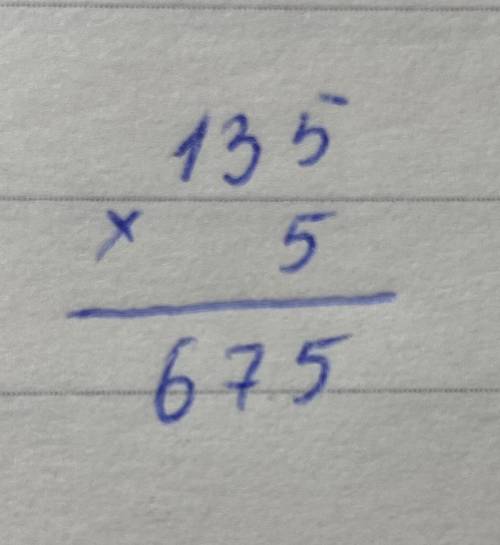 135
× 5
675